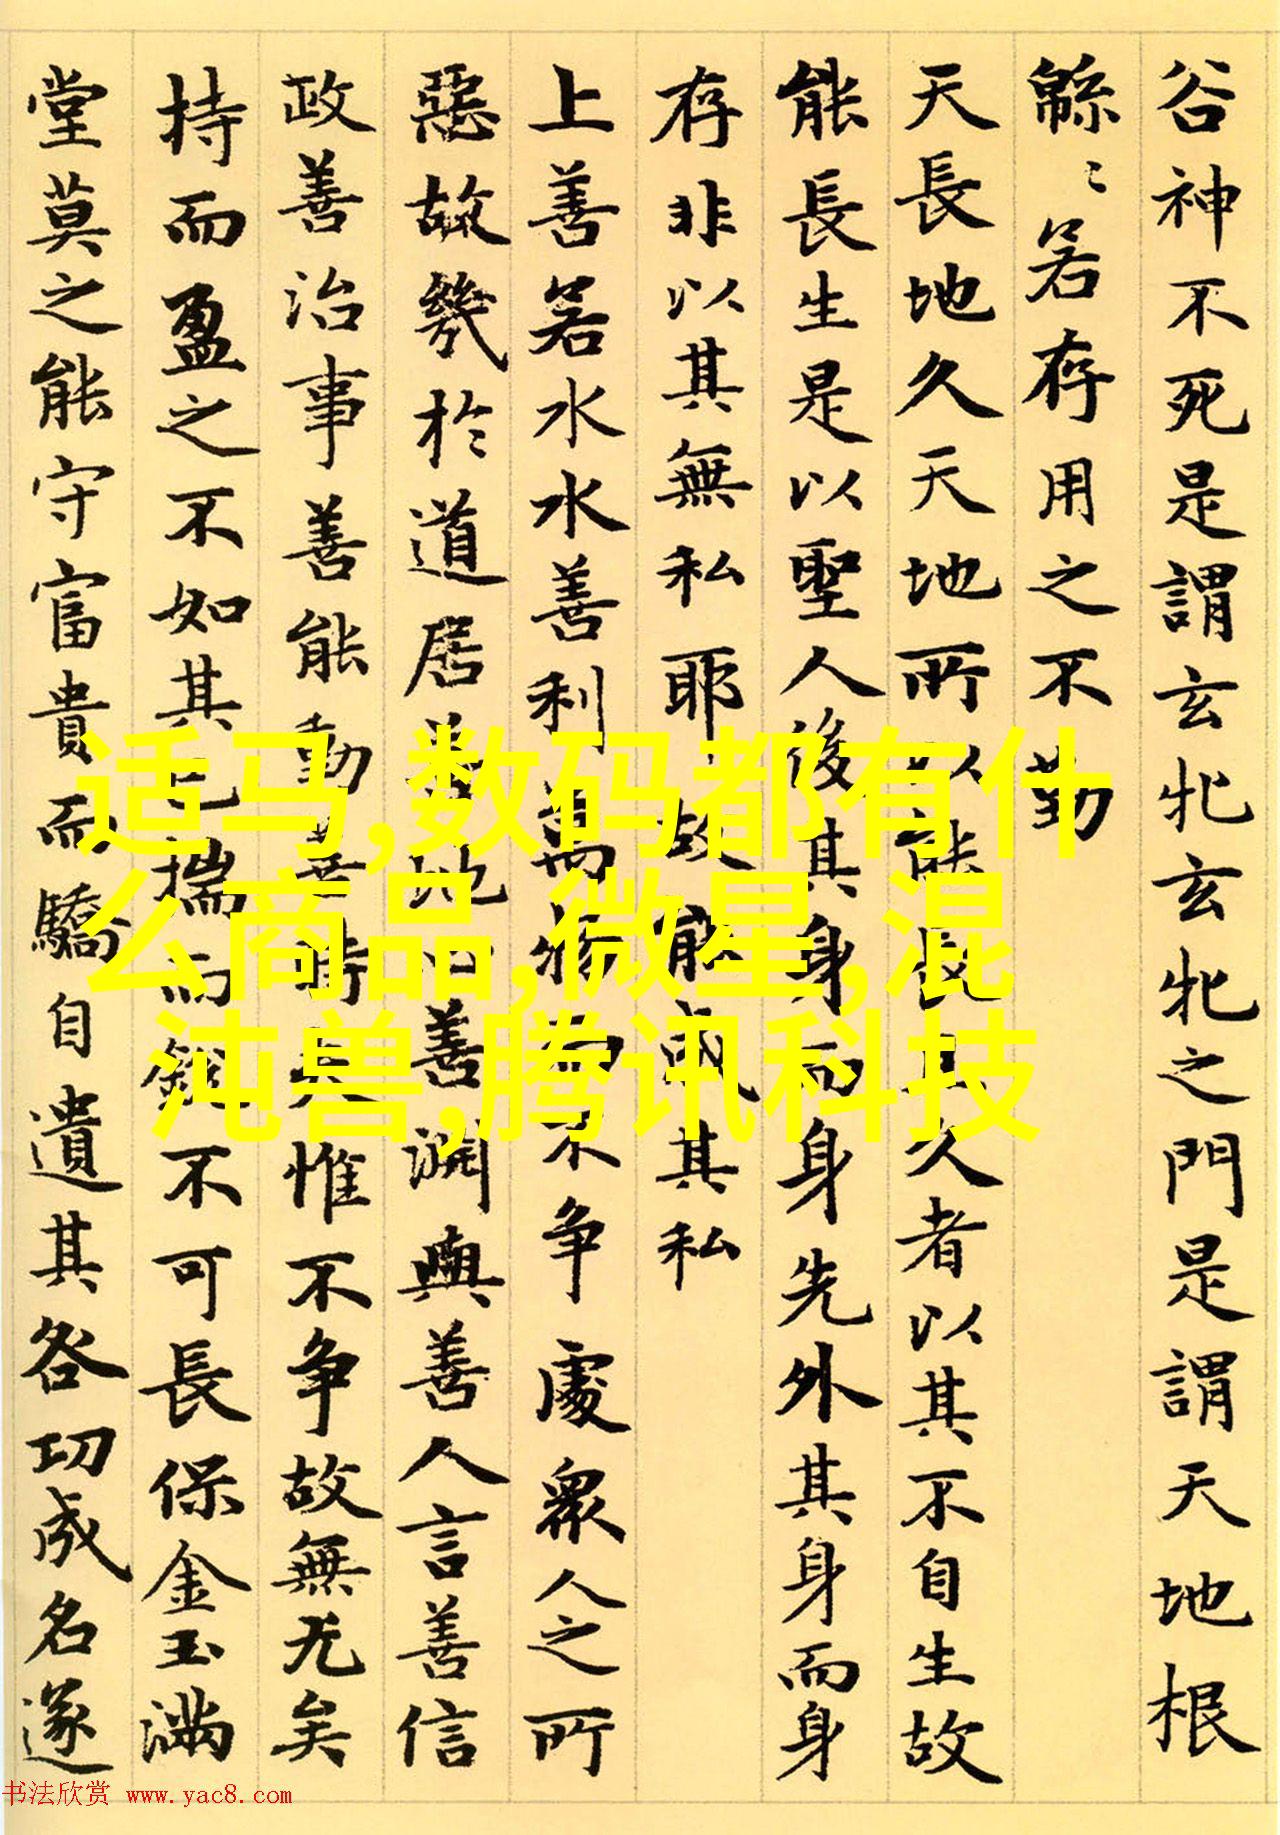 谷神不死是謂玄牝玄牝之門是謂天地根
緜〻若存用之不勤
天長地久天地所以能長且久者以其不自生故
能長生是以聖人後其身而身先外其身而身
存非以其無私耶故能成其私
上善若水水善利萬物而不争處衆人之所
惡故幾於道居善地心善淵與善人言善信
政善治事善能動善時夫惟不争故無尤矣
持而盈之不如其已揣而銳不可長保金玉滿
堂莫之能守富貴而驕自遺其咎功成名遂
适马,数码都有什
么商品,微星,混
沌兽,腾讯科技
书法欣赏 www.yac8.com